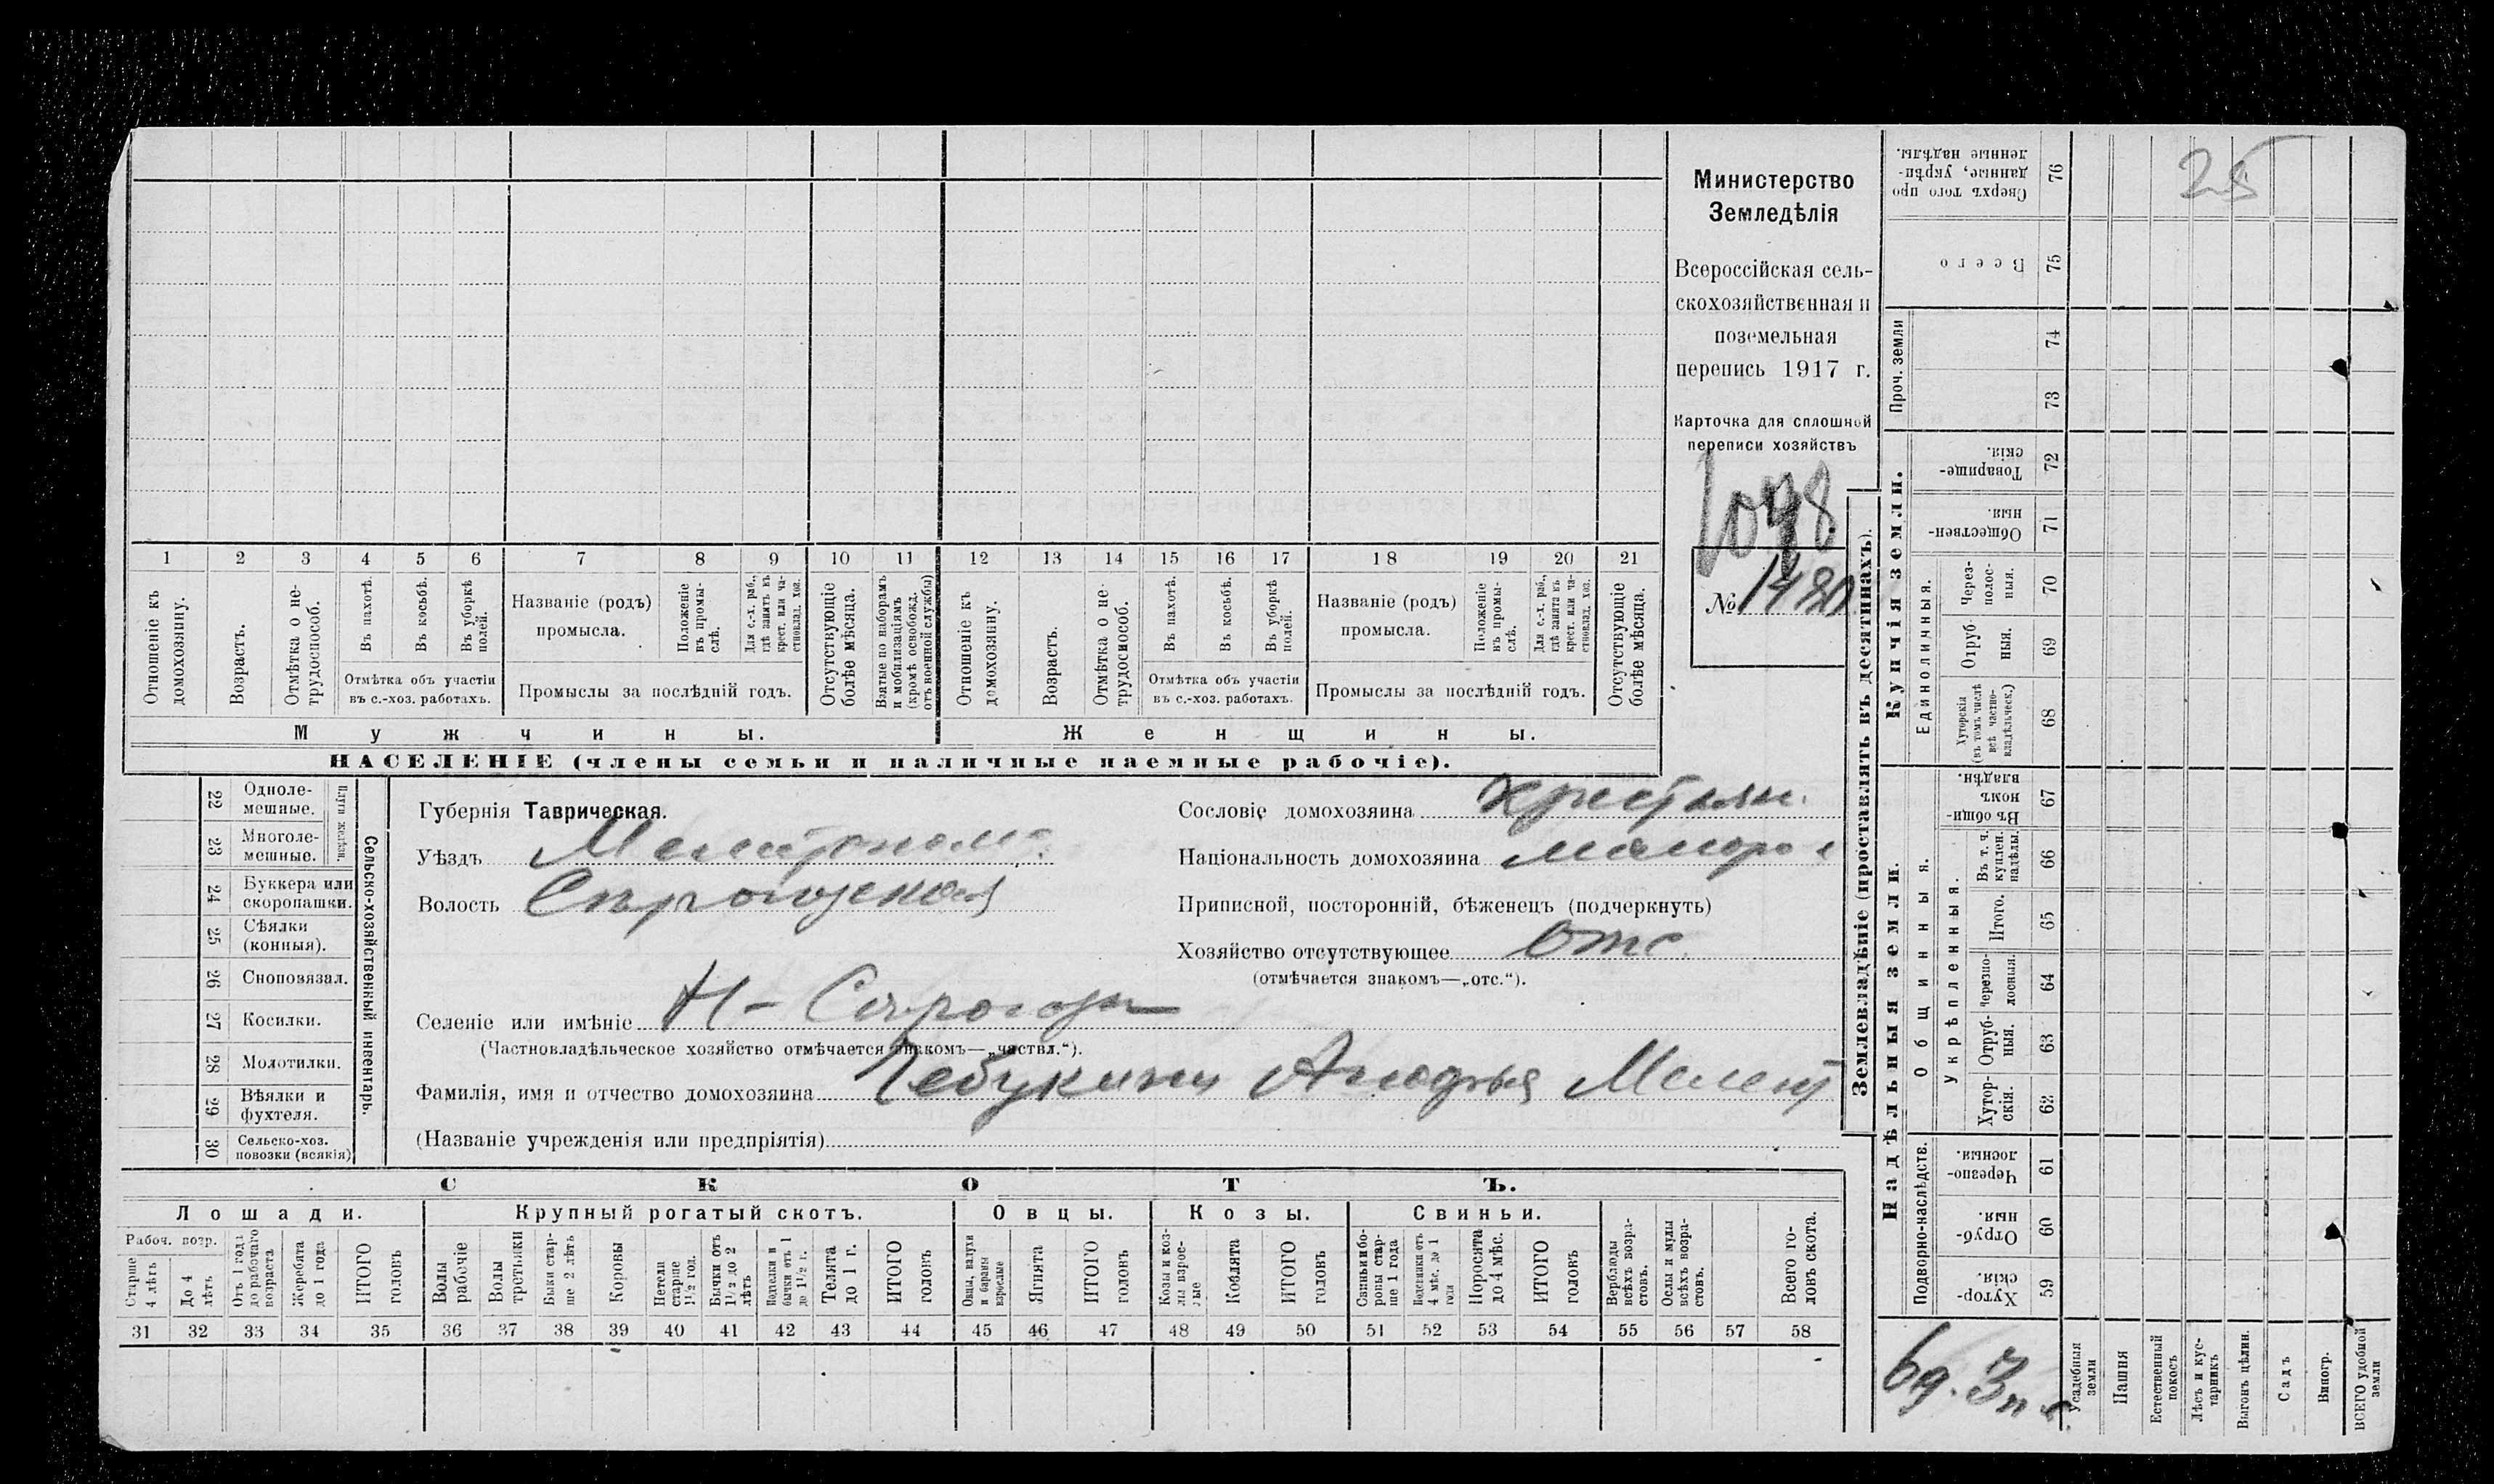 1 2 3 4 5 6 7 8 9 10 11 12 13 14 15 16 17 18 19 20 21
Отношеніе къ домохозяину.
Возрастъ.
Отмѣтка о не-
трудоспособ.
Въ пахотѣ.
Въ косьбѣ.
Въ уборкѣ
полей.
Отмѣтка объ участіи
въ с.-хоз. работахъ.
Названіе (родъ)
промысла.
Положеніе
въ промы-
слѣ.
Для с.-х. раб.,
гдѣ занятъ въ
крест. или ча-
стновлад. хоз.
Промыслы за послѣдній годъ.
Отсутствующіе
болѣе мѣсяца.
Взятые по наборамъ
и мобилизаціямъ
(кромѣ освобожд.
отъ военной службы)
Отношеніе къ
домохозяину.
Возрастъ.
Отмѣтка о не-
трудоспособ.
Въ пахотѣ.
Въ косьбѣ.
Въ уборкѣ
полей.
Отмѣтка объ участіи
въ с.-хоз. работахъ.
Названіе (родъ)
промысла.
Положеніе
въ промы-
слѣ.
Для с.-х. раб.,
гдѣ занята въ
крест. или ча-
стновлад. хоз.
Промыслы за послѣдній годъ.
Отсутствующіе
болѣе мѣсяца.
Мужчины.
Женщины.
НАСЕЛЕНІЕ (члены семьи и наличные наемные рабочіе).
Министерство
Земледѣлія
Всероссійская сель-
скохозяйственная и
поземельная
перепись 1917 г.
Карточка для сплошной
переписи хозяйствъ
№
22 Одноле-
мешные.
23 Многоле-
мешные.
Плуги желѣзн.
24 Буккера или
скоропашки.
25 Сѣялки
(конныя).
26 Сноповязал.
27 Косилки.
28 Молотилки.
29 Вѣялки и
фухтеля.
30 Сельско-хоз.
повозки (всякія)
Сельско-хозяйственный инвентарь.
Губернія Таврическая.
Уѣздъ Мелитопол.
Волость Сѣрогозская
Селеніе или имѣніе Н-Сѣрогозы
(Частновладѣльческое хозяйство отмѣчается знакомъ—„частвл.“).
Фамилія, имя и отчество домохозяина
(Названіе учрежденія или предпріятія)
Сословіе домохозяина крестьян.
Національность домохозяина малоро
Приписной, посторонній, бѣженецъ (подчеркнуть)
Хозяйство отсутствующее Отс.
(отмѣчается знакомъ—„отс.“).
СКОТЪ.
Лошади.
Крупный рогатый скотъ.
Овцы.
Козы.
Свиньи.
Рабоч. возр.
Старше
4 лѣтъ
До 4
лѣтъ
Отъ 1 года
до рабочаго
возраста
Жеребята
до 1 года
ИТОГО
головъ
Волы
рабочіе
Волы
третьяки
Быки стар-
ше 2 лѣтъ
Коровы
Нетели
старше
1½ год.
Бычки отъ
1½ до 2
лѣтъ
Подтелки и
бычки отъ 1
до 1½ г.
Телята
до 1 г.
ИТОГО
головъ
Овцы, валухи
и бараны
взрослые
Ягнята
ИТОГО
головъ
Козы и коз-
лы взрос-
лые
Козлята
ИТОГО
головъ
Свиньи и бо-
ровы стар-
ше 1 года
Подсвинки отъ
4 мѣс. до 1
года
Поросята
до 4 мѣс.
ИТОГО
головъ
Верблюды
всѣхъ возра-
стовъ.
Ослы и мулы
всѣхъ возра-
стовъ.
Всего го-
ловъ скота.
31 32 33 34 35 36 37 38 39 40 41 42 43 44 45 46 47 48 49 50 51 52 53 54 55 56 57 58
Землевладѣніе (проставлять въ десятинахъ).
Надѣльныя земли.
Купчія земли.
Проч. земли
Подворно-наслѣдств.
Общинныя.
Укрѣпленныя.
Единоличныя.
Сверхъ того про
данные, укрѣп-
ленные надѣлы.
76
Всего
75
74
73
Товарище-
скія.
72
Обществен-
ныя.
71
Через-
полос-
ныя.
70
Отруб-
ныя.
69
Хуторскія
(въ томъ числѣ
всѣ частно-
владѣльческ.)
68
Въ общин-
номъ
владѣн.
67
Въ т. ч.
куплен.
надѣлы.
66
Итого.
65
Черезпо-
лосныя.
64
Отруб-
ныя.
63
Хутор-
скія.
62
Черезпо-
лосныя.
61
Отруб-
ныя.
60
Хутор-
скія.
59
Усадебныя
земли
Пашня
Естественный
покосъ
Лѣсъ и кус-
тарникъ
Выгонъ цѣлин.
Садъ
Виногр.
ВСЕГО удобной
земли
25